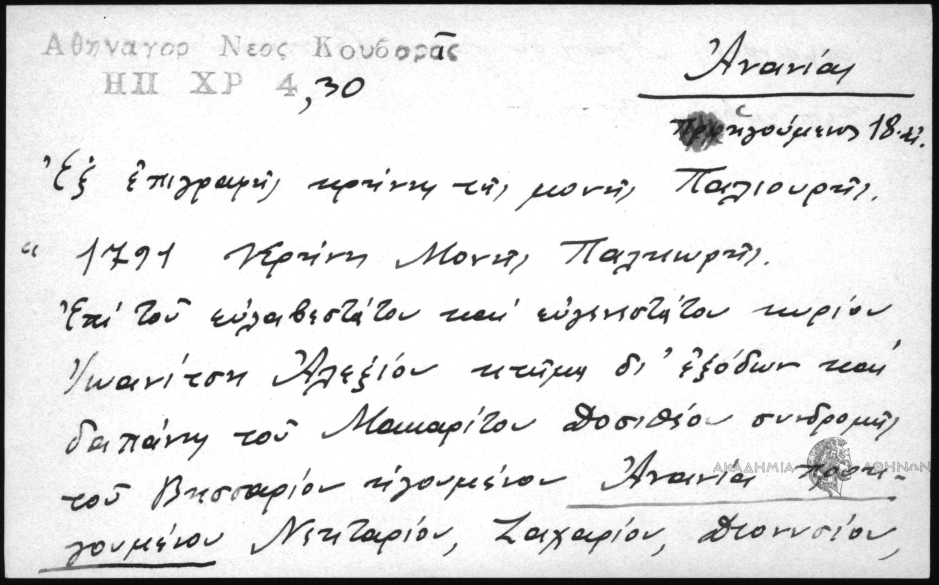 Αθηναγορ Νεος Κουβαρᾶς
ΗΠ ΧΡ 4,30
Ἀνανίας
προηγούμενος 18 αἰ.
Ἐξ ἐπιγραφῆς κρήνης τῆς μονῆς Παλιουρῆς.
" 1791 Κρήνη Μονῆς Παληωρῆς.
Ἐπὶ τοῦ εὐλαβεστάτου καὶ εὐγενεστάτου κυρίου
Ἰωανίτση Ἀλεξίου κτῆμα δι' ἐξόδων καὶ
δαπάνης τοῦ Μακαρίτου Δοσιθέου συνδρομῆς
τοῦ Βησσαρίου ἡγουμένου Ἀνανία προη-
γουμένου Νεκταρίου, Ζαχαρίου, Διονυσίου,
ΑΚΑΔΗΜΙΑ ΑΘΗΝΩΝ